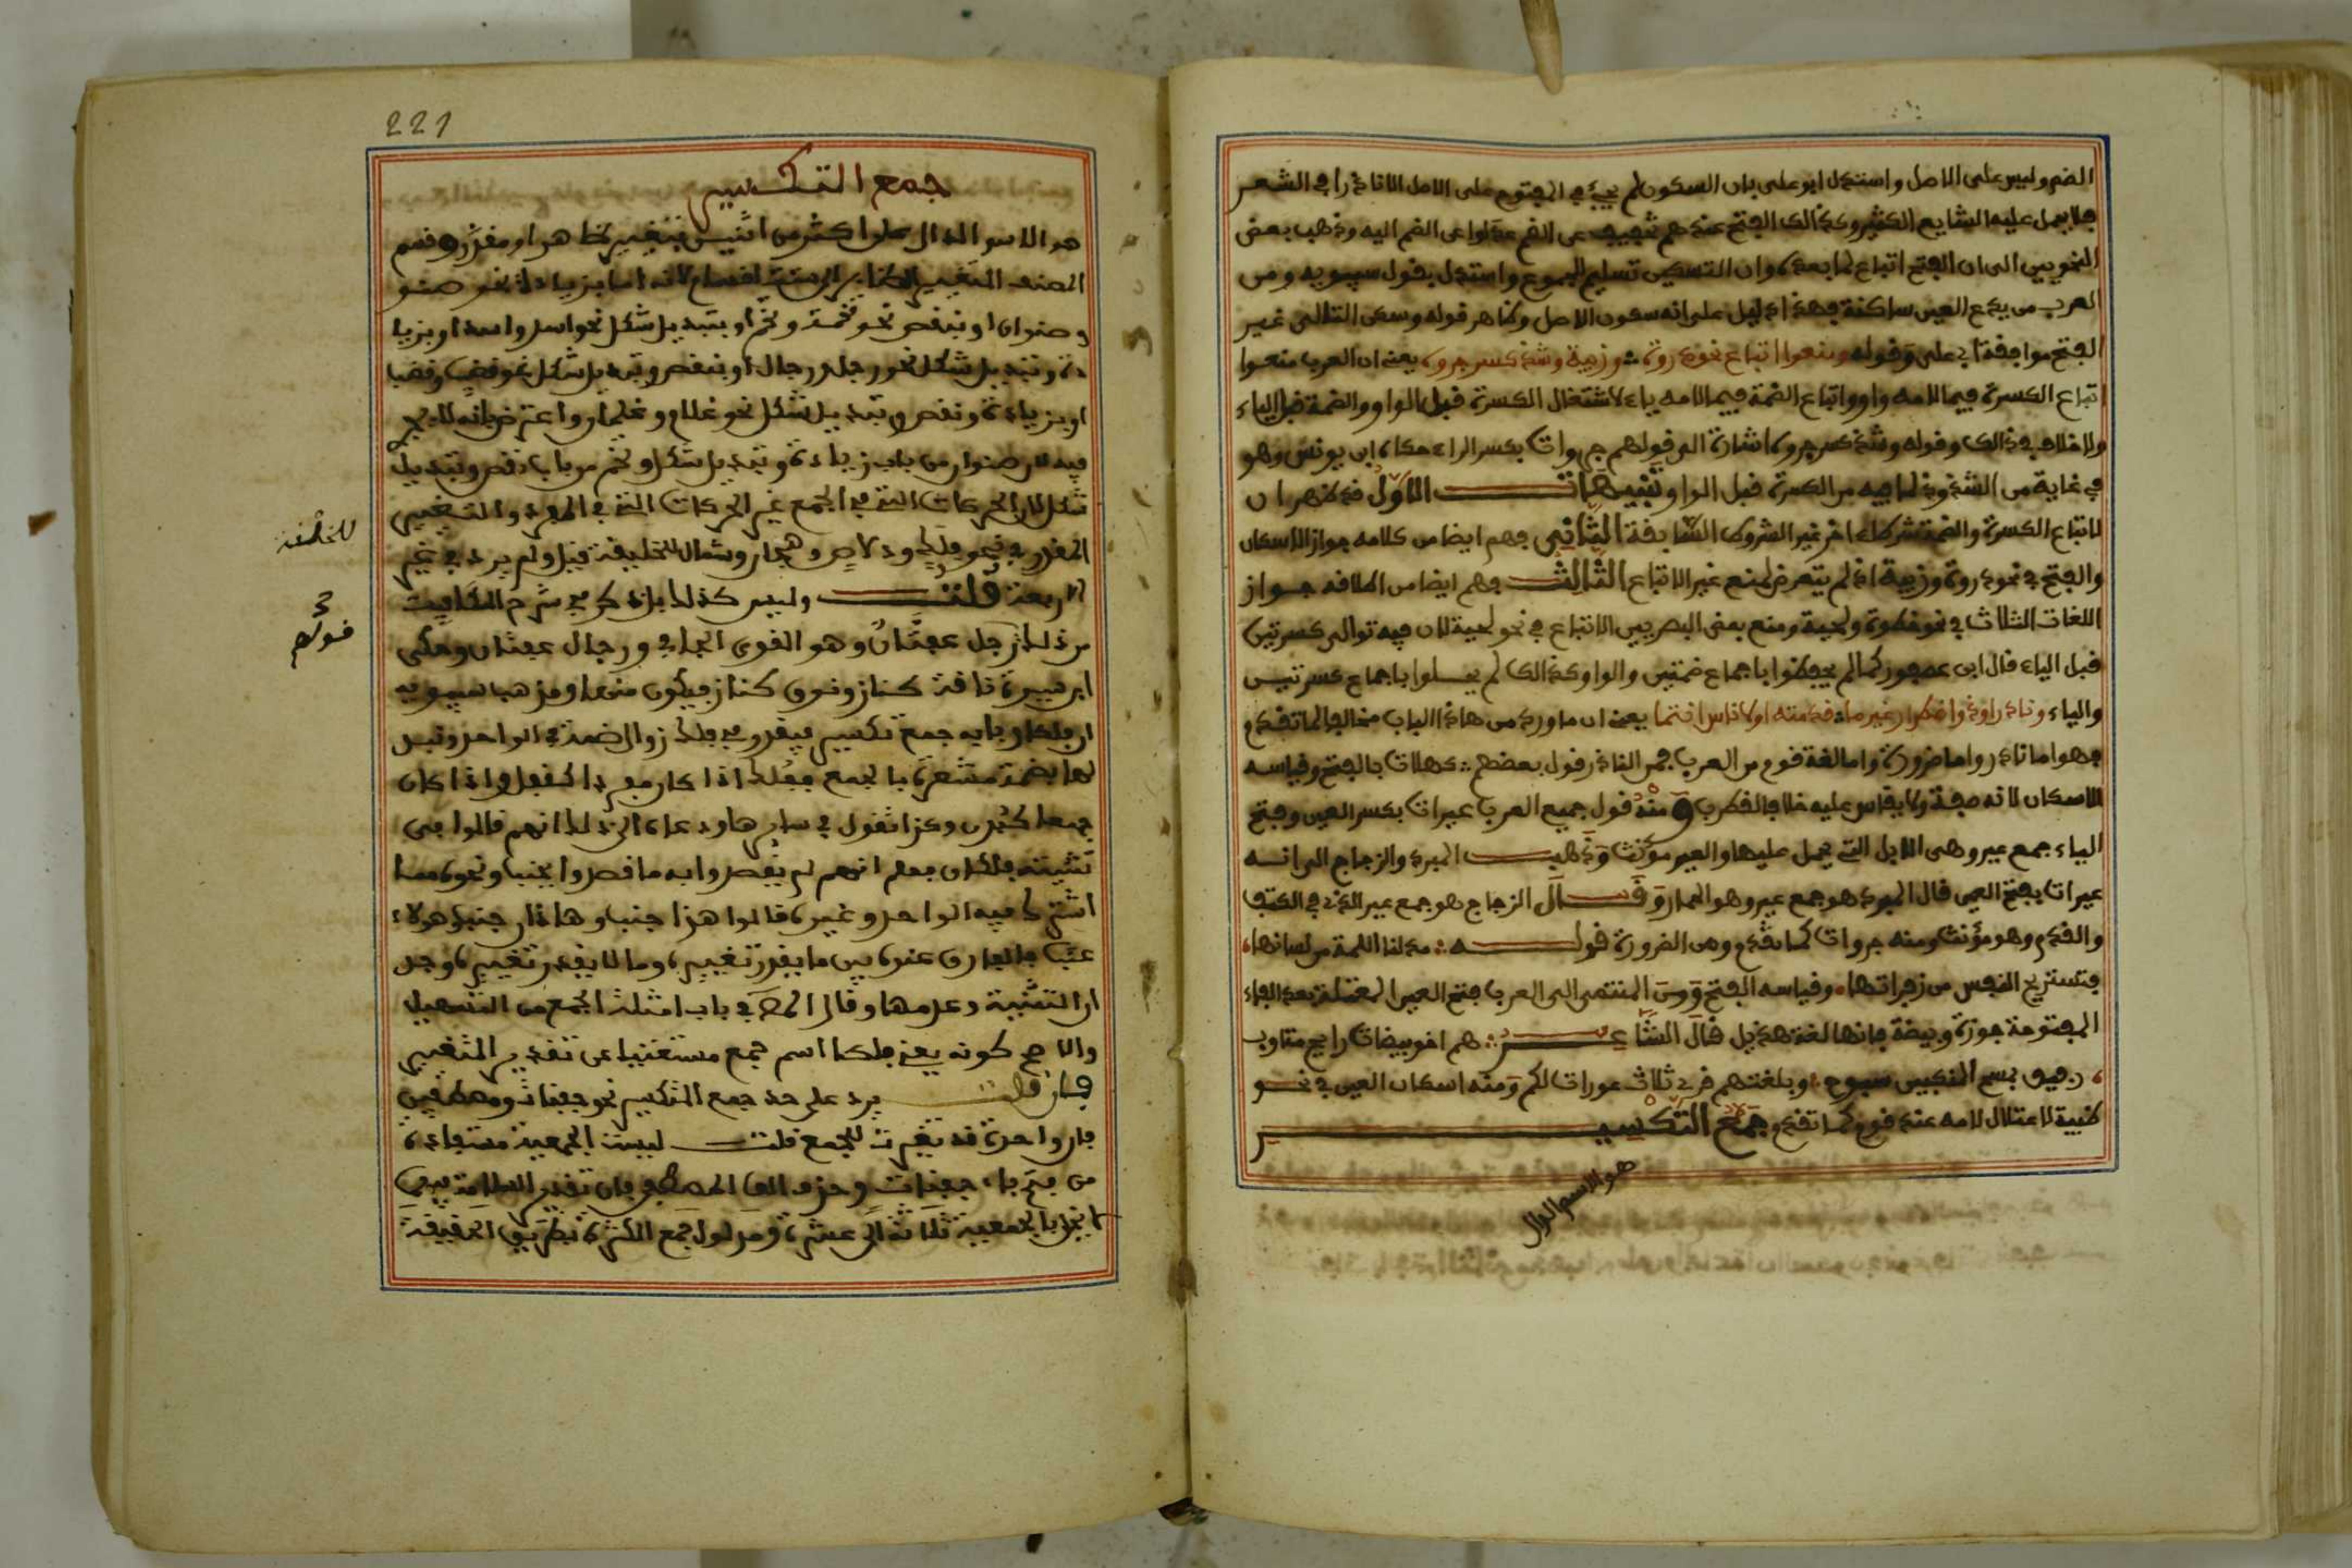 الضم وليس على الاصل واستدل ابو على بان السكون لم يجئ في المفتوح على الاصل الا نادرا في الشعر
فلا يحمل عليه الشايع الكثير وكذالك الفتح عندهم تخفيف عن الضم عدلوا عن الضم اليه وذهب بعض
النحويين الى ان الفتح اتباع لما بعده وان التسكين تسليم للجموع واستدل بقول سيبويه ومن
العرب من يدع العين ساكنة فهذا دليل على انه سكون الاصل وظاهر قوله وسكن التالى غير
الفتح موافقة ابي على وقوله ومنعوا اتباع نحو ذروة وزبية وشذ كسر جروه يعنى ان العرب منعوا
اتباع الكسرة فيما لامه واو واتباع الضمة فيما لامه ياء لاستثقال الكسرة قبل الواو والضمة قبل الياء
ولا خلاف في ذالك وقوله وشذ كسر جروه اشارة الى قولهم جروات بكسر الراء حكاه ابن يونس وهو
في غاية من الشذوذ لما فيه من الكسرة قبل الواو تنبيهات الاول قد ظهر ان
لاتباع الكسرة والضمة شرطا اخر غير الشروط السابقة الثاني فهم ايضا من كلامه جواز الاسكان
والفتح في نحو ذروة وزبية اذ لم يتعرض لمنع غير الاتباع الثالث فهم ايضا من اطلاقه جواز
اللغات الثلاث في نحو خطوة ولحية ومنع بعض البصريين الاتباع في نحو لحية لان فيه توالى كسرتين
قبل الياء قال ابن عصفور كما لم يحفظوا باجماع ضمتين والواو كذالك لم يحفلوا باجماع كسرتيس
والياء ونادر او ذو اضطرار غير ما قدمته او لاناس انتما يعنى ان ما ورد من هاذا الباب مخالفا لما تقدم
فهو اما نادر واما ضرورة واما لغة قوم من العرب فمن النادر قول بعضهم كهلات بالفتح وقياسه
الاسكان لانه صفة ولا يقاس عليه خلافا لقطرب ومنه قول جميع العرب عيرات بكسر العين وفتح
الياء جمع عير وهى الابل التى يحمل عليها والعير مؤنث وذهب المبرد والزجاج الى انه
عيرات بفتح العين قال المبرد هو جمع عير وهو الحمار وقال الزجاج هو جمع عير الذى في الكتف
والقدم وهو مؤنث ومنه جروات كما تقدم ومن الضرورة قوله مدلنا اللمة من لماتها
فتستريح النفس من زفراتها وقياسه الفتح ومن المنتمى الى العرب فتح العين المعتلة بعد الفاء
المفتوحة جوزة وبيضة فانها لغة هذيل قال الشاعر هم اخو بيضات رايح متاوب
رفيق بمسح المنكبين سبوح وبلغتهم قرئ ثلاث عورات لكم ومنه اسكان العين في نحو
ظبية لاعتلال لامه عند قوم كما تقدم جمع التكسير
هو الاسم الدال
221
جمع التكسير
هو الاسم الدال على اكثر من اثنين بتغيير ظاهر او مقدر وقسم
المصنف التغيير الظاهر الى ستة اقسام لانه اما بزيادة نحو صنو
وصنوان او بنقص نحو تخمة وتخم او بتبديل شكل نحو اسد واسد او بزيا
دة وتبديل شكل نحو رجل ورجال او بنقص وتبديل شكل نحو قضيب وقضب
او بزيادة ونقص وتبديل شكل نحو غلام وغلمان واعترض بانه لا تحرير
فيه لان صنوان من باب زيادة وتبديل شكل وتخم من باب نقص وتبديل
شكل لان الحركات التى في الجمع غير الحركات التى في المفرد والتغيير
المقدر في نحو فلك ودلاص وهجان وشمال للخليقة قيل ولم يرد في غير
الاربعة قلت وليس كذلك بل ذكر في شرح الكافيت
من ذلك رجل عفتان وهو القوى الجافى ورجال عفتان وحكى
ابن سيده ناقة كناز ونوق كناز فيكون منها ومذهب سيبويه
ان فلكا وبابه جمع تكسير فيقدر في فلك زوال ضمة في الواحد وتبد
لها بضمة مشعرة بالجمع ففلك اذا كان مفردا كقفل واذا كان
جمعا كبدن وكذا تقول في سايرها ودعاه الى ذلك انهم قالوا في
تثنيته فلكان فعلم انهم لم يقصدوا به ما قصدوا بجنب ونحوه مما
اشترك فيه الواحد وغيره قالوا هذا جنب وهاذان جنب وهؤلاء
جنب فالفارق عنده بين ما يقدر تغييره وما لا يقدر تغييره وجد
ان التثنية وعدمها وقال المص في باب امثلة الجمع من التسهيل
والاصح كونه يعنى فلكا اسم جمع مستغنيا عن تقدير التغيير
فان قلت يرد على حد جمع التكسير نحو جفنات ومصطفين
فان واحده قد تغير للجمع قلت ليست الجمعية مستفادة
من فتح فاء جفنات وحذف الف المصطفى فان تقدير السلامة فيهما
لا يخل بالجمعية ثلاثة الى عشرة ومدلول جمع الكثرة بطريق الحقيقة
للخلقة
قولهم